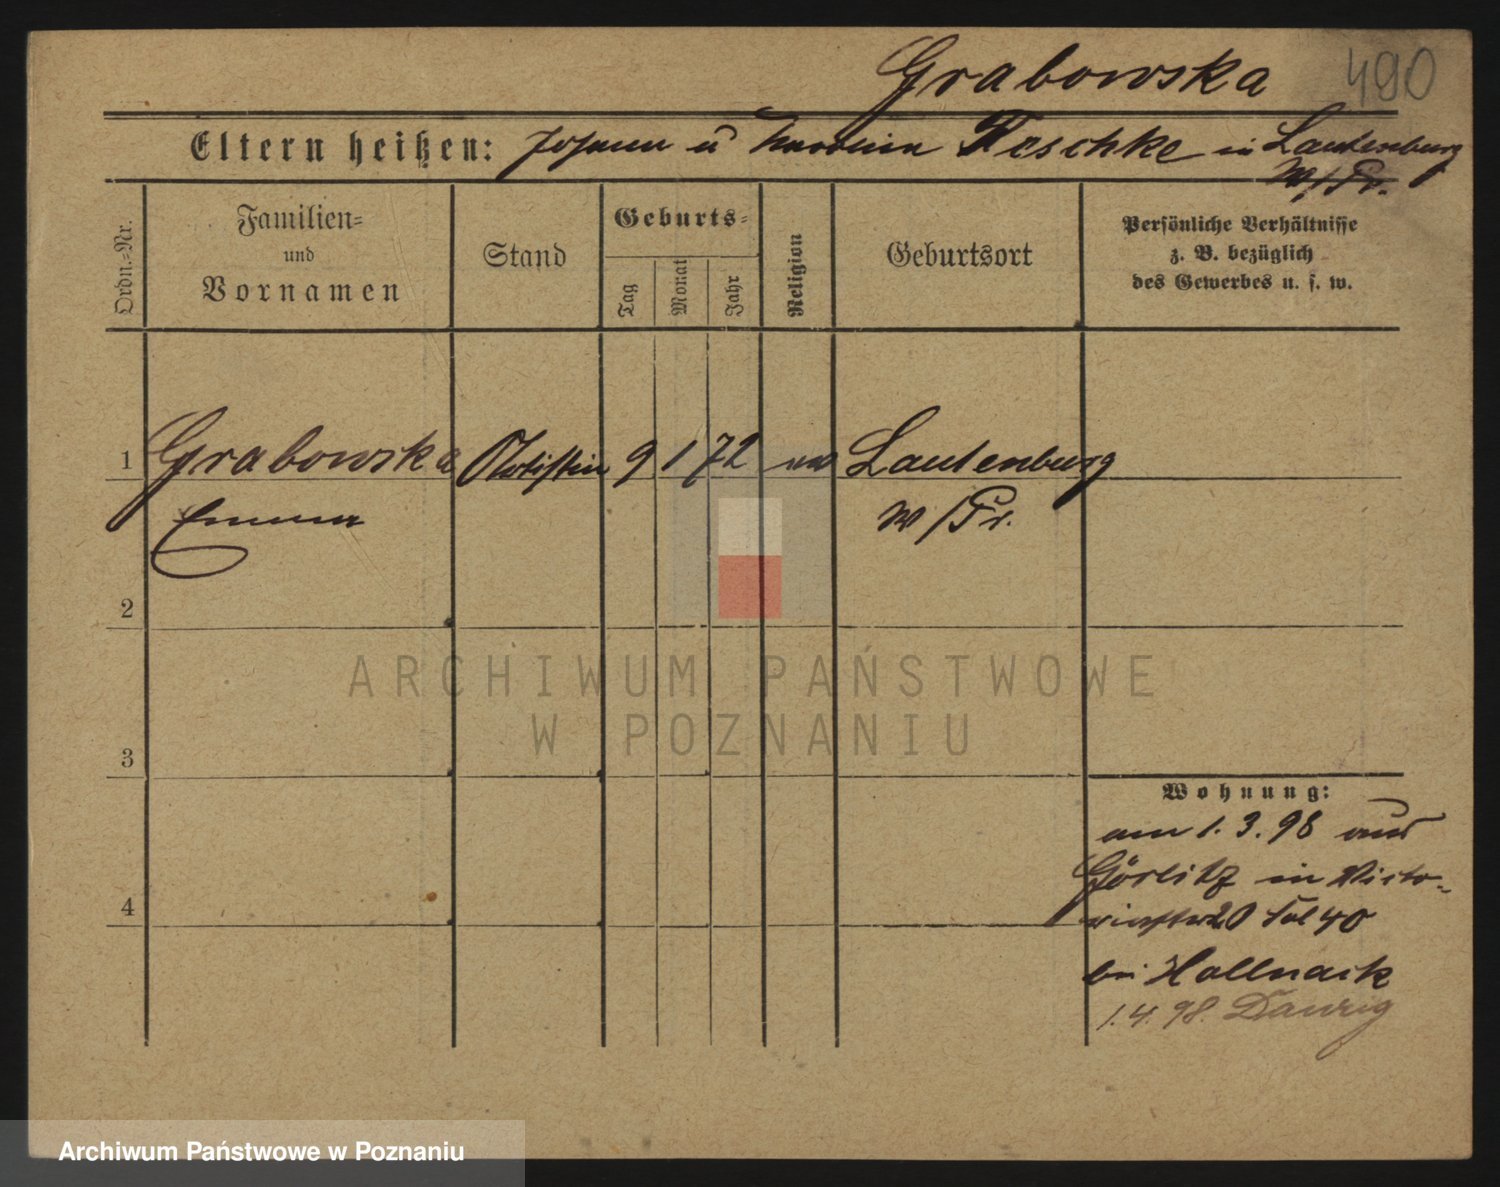 Grabowska 490
Eltern heißen: Johann u Teschke in Lautenburg
W/Pr.
Ordn.=Nr.
Familien=
und
Vornamen
Stand
Geburts=
Tag
Monat
Jahr
Religion
Geburtsort
Persönliche Verhältnisse
z. B. bezüglich
des Gewerbes u. s. w.
1 Grabowska 9 1 72 Lautenburg
Emma W/Pr.
2
ARCHIWUM PAŃSTWOWE
W POZNANIU
3
Wohnung:
am 1. 3. 98 aus
Görlitz in Victo-
riastr 20 40
bei Hollnack
1. 4. 98. Danzig
4
Archiwum Państwowe w Poznaniu